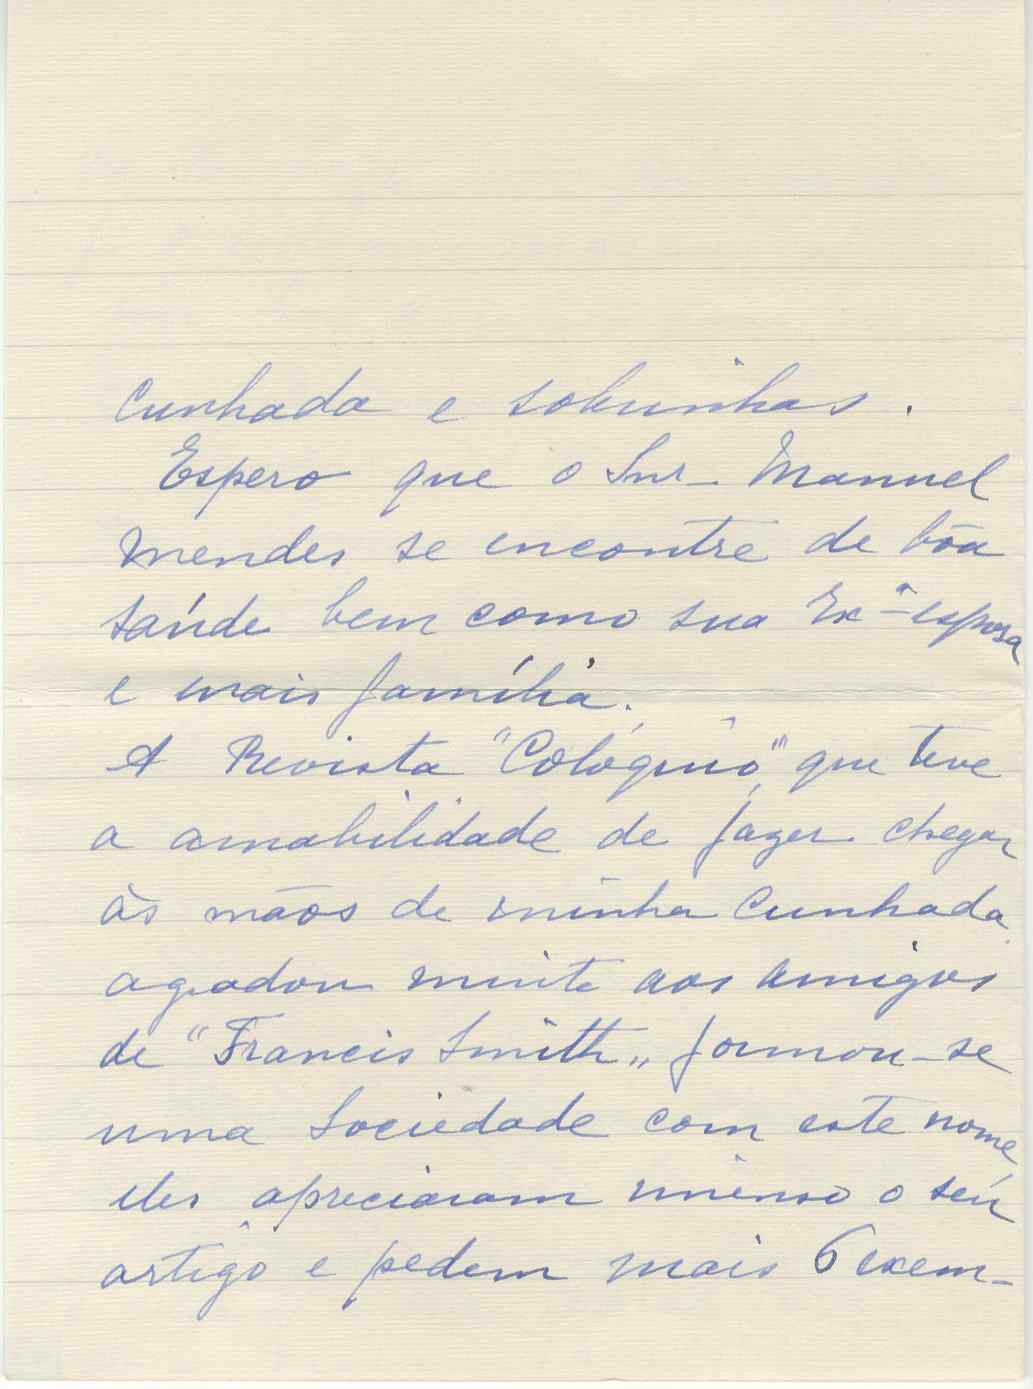 Cunhada e sobrinhas.
Espero que o Snr. Manuel
Mendes se encontre de bôa
saúde bem como sua Exª esposa
e mais família.
A Revista "Colóquio", que teve
a amabilidade de fazer chegar
às mãos de minha Cunhada
agradou muito aos amigos
de "Francis Smith" formou-se
uma Sociedade com este nome,
eles apreciaram imenso o seu
artigo e pedem mais 6 exem-